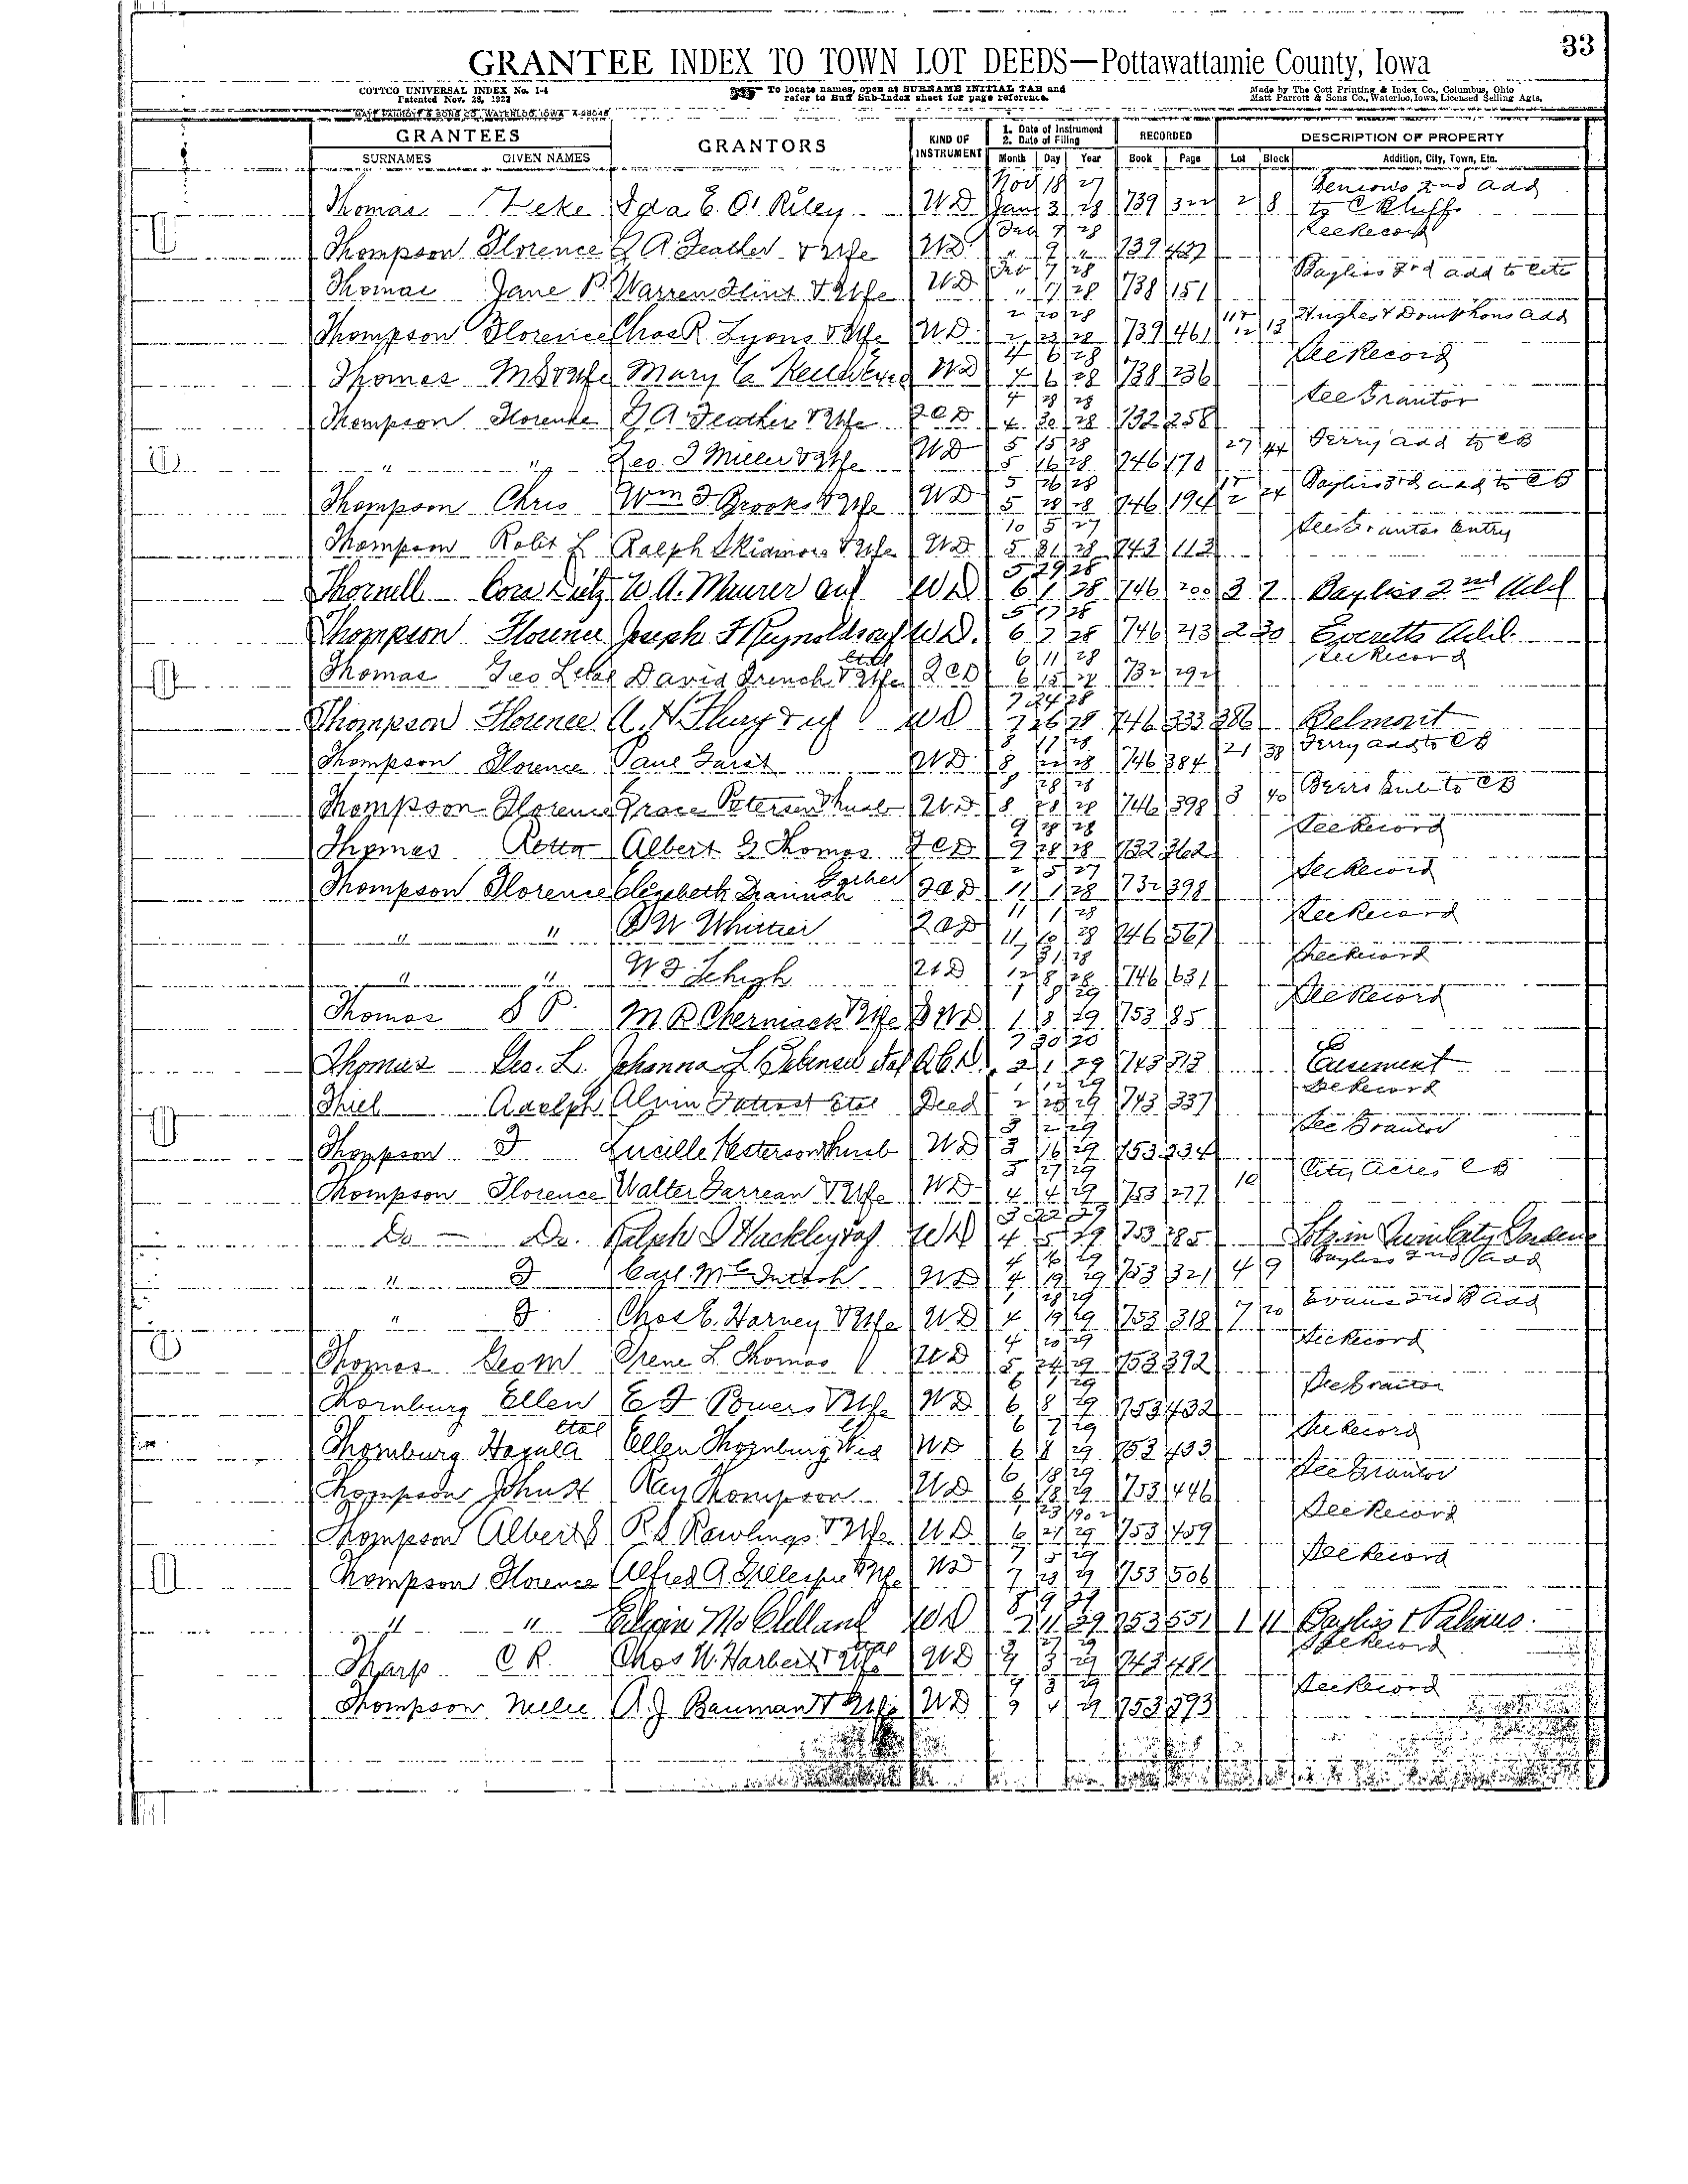 33
GRANTEE INDEX TO TOWN LOT DEEDS—Pottawattamie County, Iowa
COTTCO UNIVERSAL INDEX No. 1-4
Patented Nov. 28, 1922
To locate names, open at SURNAME INITIAL TAB and
refer to Buff Sub-Index sheet for page reference.
Made by The Cott Printing & Index Co., Columbus, Ohio
Matt Parrott & Sons Co., Waterloo, Iowa, Licensed Selling Agts.
MATT PARROTT & SONS CO., WATERLOO, IOWA A-98045
GRANTEES GRANTORS KIND OF INSTRUMENT 1. Date of Instrument 2. Date of Filing RECORDED DESCRIPTION OF PROPERTY
SURNAMES GIVEN NAMES Month Day Year Book Page Lot Block Addition, City, Town, Etc.
Nov 18 27 2nd add
Thomas Zeke Ida E. O'Riley WD Jan 3 28 739 322 2 8 to C Bluffs
7 28 See Record
Thompson Florence G A Feather & Wife WD " 9 " 739 427
Feb 7 28 Bayliss 3rd add to
Thomas Jane P Warren Flint & Wife WD " 7 28 738 151
2 20 28 Hughes & Doniphans add
Thompson Florence Chas R Lyons & Wife WD 2 23 28 739 461 12 13
4 6 28 See Record
Thomas M S & Wife Mary C WD 4 6 28 738 236
4 28 28 See Grantor
Thompson Florence G A Feather & Wife QCD 4 30 28 732 258
5 15 28 27 44 Ferry add to CB
" " Geo. F Miller & Wife WD 5 16 28 746 170
5 26 28 Bayliss 3rd add to CB
Thompson Chris Wm F Brooks & Wife WD 5 28 28 746 194 2 24
10 5 27 See Grantor Entry
Thompson Robt L Ralph Skidmore & Wife WD 5 31 28 743 113
5 29 28
Thornell Cora Dietz W. A. Maurer WD 6 1 28 746 200 3 7 Bayliss 2nd Add
5 17 28
Thompson Florence Joseph F Reynolds WD. 6 7 28 746 213 2 30 Everetts Add.
6 11 28 See Record
Thomas Geo L etal David French etal & Wife QCD 6 15 28 732 292
7 24 28
Thompson Florence A. N. Flury WD 7 26 28 746 333 386 Belmont
8 17 28 21 38 Ferry add to CB
Thompson Florence Paul WD 8 22 28 746 384
8 28 28 3 40 Beers Sub to CB
Thompson Florence Grace Petersen & husb WD 8 28 28 746 398
9 28 28 See Record
Thomas Retta Albert G Thomas QCD 9 28 28 732 362
2 5 27 See Record
Thompson Florence Elizabeth QCD 11 1 28 732 398
11 1 28 See Record
" " O W Whittier QCD 11 10 28 746 567
7 31 28 See Record
" " W F Lehigh WD 12 8 28 746 631
1 8 29 See Record
Thomas S P. M B Cherniack & Wife WD 1 8 29 753 85
7 30 20
Thomas Geo. L. Johanna L 2 1 29 743 313 Easement
1 12 29 See Record
Thiel Adolph Alvin etal Deed 2 20 29 743 337
3 2 29 See Grantor
Thompson F Lucille Kesterson & husb WD 3 16 29 753 234
3 27 29 10 City Acres CB
Thompson Florence Walter Darrean & Wife WD 4 4 29 753 277
3 22 29
Do Do. Ralph S Hackley WD 4 5 29 753 285 Lots in Twin City Gardens
4 16 29 4 9 Bayliss 2nd Add
" F Carl McIntosh WD 4 19 29 753 321
1 28 29 7 20 Evans 2nd B add
" F Chas E. Harvey & Wife WD 4 19 29 753 318
4 20 29 See Record
Thomas Geo M Irene L. Thomas WD 5 24 29 753 392
6 1 29 See Grantor
Thornburg Ellen E F Powers & Wife WD 6 8 29 753 432
etal 6 7 29 See Record
Thornburg Hazel A Ellen Thornburg Wid WD 6 8 29 753 433
6 18 29 See Grantor
Thompson John H Ray Thompson WD 6 18 29 753 446
1 23 1902 See Record
Thompson Albert S R. S Rawlings & Wife WD 6 21 29 753 459
7 5 29 See Record
Thompson Florence Alfred A Gillespie & Wife WD 7 23 29 753 506
8 9 29
" " Edwin McClelland WD 11 29 753 551 1 11 Bayliss & Palmers.
27 29 See Record
Tharp C R. Chas W. Harbert etal & Wife WD 3 29 743 481
9 3 29 See Record
Thompson Nellie A. J. Bauman & Wife WD 9 4 29 753 593